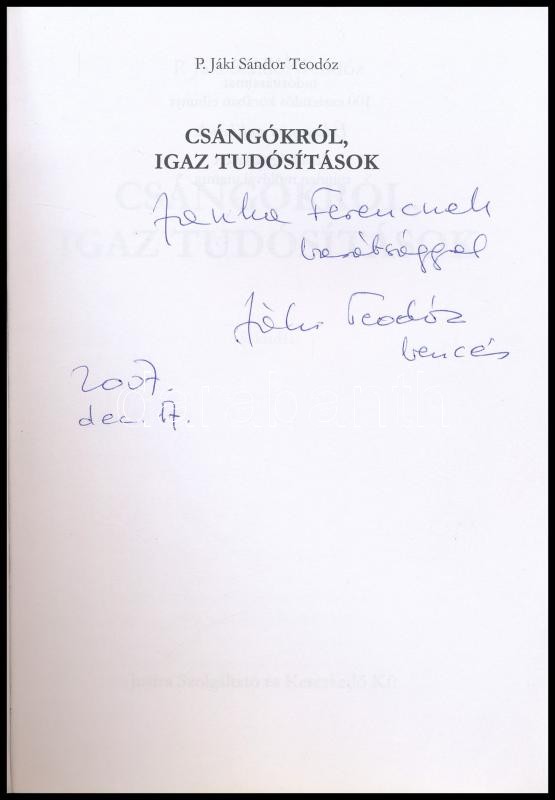 P. Jáki Sándor Teodóz
CSÁNGÓKRÓL,
IGAZ TUDÓSÍTÁSOK
Janka Ferencnek
barátsággal
Jáki Teodóz
bencés
2007.
dec. 17.